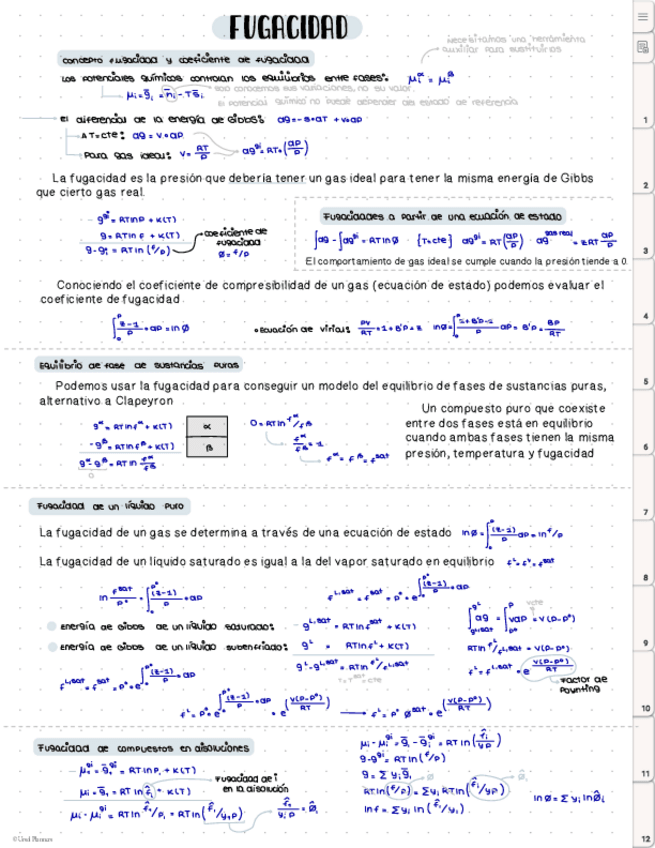 FUGACIDAD
necesitamos una herramienta
auxiliar para sustituirlas
Concepto fugacidad y coeficiente de fugacidad
Los potenciales químicos controlan los equilibrios entre fases: μᵢ^α = μᵢ^β
solo conocemos sus variaciones, no su valor.
μᵢ = ḡᵢ = h̄ᵢ - Ts̄ᵢ
El potencial químico no puede depender del estado de referencia
El diferencial de la energía de Gibbs: dg = -s·dT + v·dP
A T=cte: dg = v·dP
Para gas ideal: v = RT/P dg^gi = RT·(dP/P)
La fugacidad es la presión que debería tener un gas ideal para tener la misma energía de Gibbs
que cierto gas real.
g^gi = RTlnP + K(T)
g = RTln f + K(T)
g - g^gi = RT ln (f/P)
coeficiente de
fugacidad
Ø = f/P
Fugacidades a partir de una ecuación de estado
∫dg - ∫dg^gi = RTlnØ [T=cte] dg^gi = RT(dP/P) dg^gas real = zRT dP/P
El comportamiento de gas ideal se cumple cuando la presión tiende a 0
Conociendo el coeficiente de compresibilidad de un gas (ecuación de estado) podemos evaluar el
coeficiente de fugacidad
∫₀^P (z-1)/P · dP = lnØ • Ecuación de virial: Pv/RT = 1 + B'P = z lnØ = ∫₀^P (1+B'P-1)/P dP = B'P = BP/RT
Equilibrio de fase de sustancias puras
Podemos usar la fugacidad para conseguir un modelo del equilibrio de fases de sustancias puras,
alternativo a Clapeyron
g^α = RTln f^α + K(T)
-g^β = RTln f^β + K(T)
g^α - g^β = RT ln f^α/f^β
0
α
β
0 = RT ln f^α/f^β
f^α/f^β = 1
f^α = f^β = f^sat
Un compuesto puro que coexiste
entre dos fases está en equilibrio
cuando ambas fases tienen la misma
presión, temperatura y fugacidad
Fugacidad de un líquido puro
La fugacidad de un gas se determina a través de una ecuación de estado lnØ = ∫₀^P (z-1)/P dP = ln f/P
La fugacidad de un líquido saturado es igual a la del vapor saturado en equilibrio f^L = f^V = f^sat
ln f^sat/P° = ∫₀^P° (z-1)/P · dP
f^L,sat = f^sat = P° · e^∫₀^P° (z-1)/P · dP
energía de Gibbs de un líquido saturado: g^L,sat = RTln f^sat + K(T)
energía de Gibbs de un líquido subenfriado: g^L = RTln f^L + K(T)
g^L - g^L,sat = RT ln f^L/f^L,sat
T = T^sat = cte
vcte
∫dg = ∫vdP = v(P-P°)
RTln f^L/f^L,sat = v(P-P°)
f^L = f^L,sat · e^(v(P-P°)/RT)
Factor de
Poynting
f^L,sat = f^sat = P° · e^∫₀^P° (z-1)/P · dP
f^L = P° · e^∫₀^P° (z-1)/P · dP · e^(v(P-P°)/RT) → f^L = P° Ø^sat · e^(v(P-P°)/RT)
Fugacidad de compuestos en disoluciones
μᵢ^gi = ḡᵢ^gi = RTlnPᵢ + K(T)
μᵢ = ḡᵢ = RTln f̂ᵢ + K(T)
μᵢ - μᵢ^gi = RTln f̂ᵢ/Pᵢ = RTln(f̂ᵢ/yᵢP)
Fugacidad de i
en la disolución
f̂ᵢ/yᵢP = Ø̂ᵢ
μᵢ - μᵢ^gi = ḡᵢ - ḡᵢ^gi = RTln(f̂ᵢ/yᵢP)
g - g^gi = RTln(f/P)
g = Σyᵢḡᵢ
RTln(f/P) = Σyᵢ RTln(f̂ᵢ/yᵢP)
ln f = Σyᵢ ln(f̂ᵢ/yᵢ)
lnØ = Σyᵢ lnØ̂ᵢ
1
2
3
4
5
6
7
8
9
10
11
12